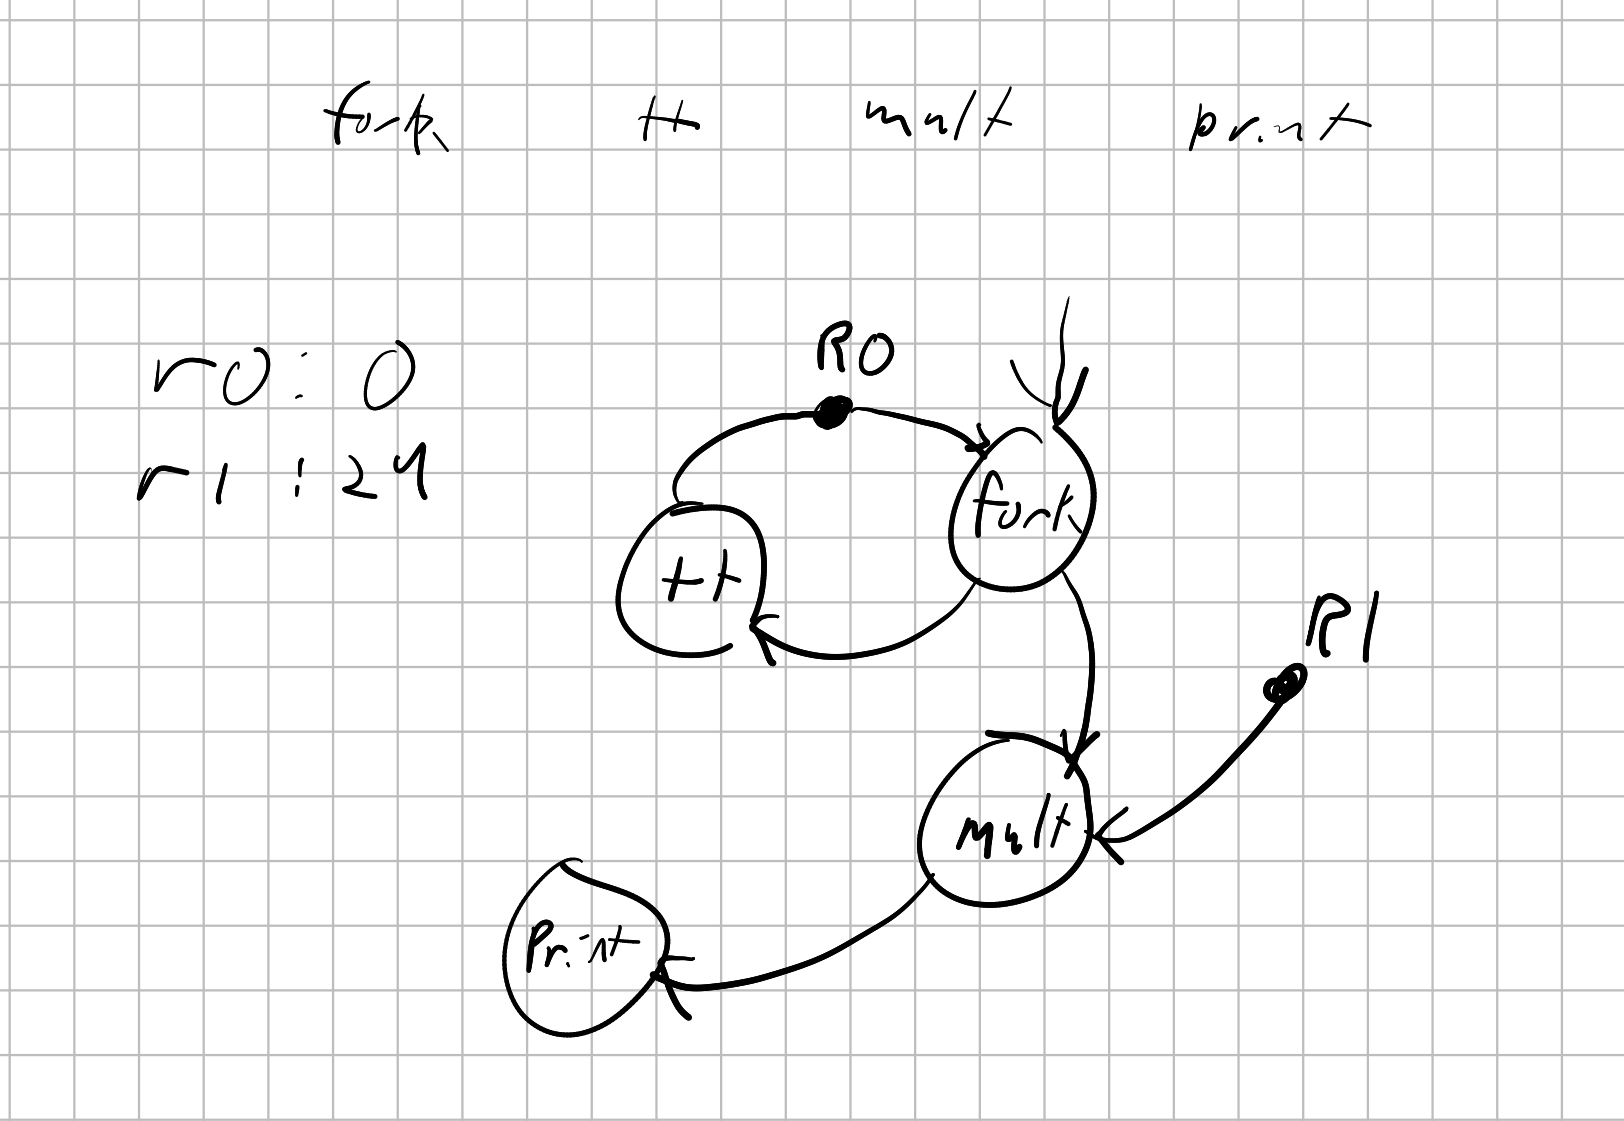 fork ++ mult print
R0
r0: 0
r1: 24
fork
++
R1
mult
Print